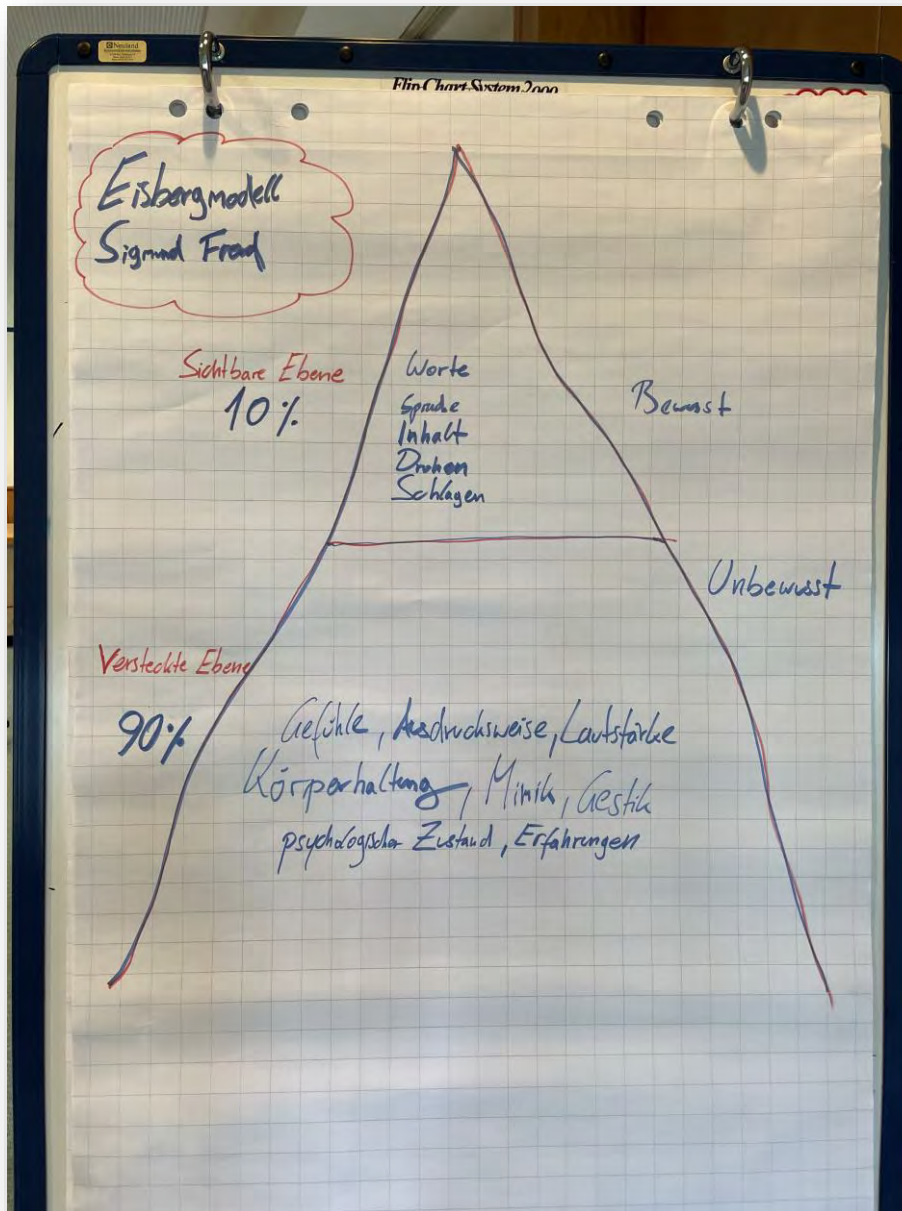 Neuland
Flip Chart-System 2000
Eisbergmodell
Sigmund Freud
Sichtbare Ebene
10%
Worte
Sprache
Inhalt
Drohen
Schlagen
Bewusst
Unbewusst
Versteckte Ebene
90%
Gefühle, Ausdrucksweise, Lautstärke
Körperhaltung, Mimik, Gestik
psychologischer Zustand, Erfahrungen